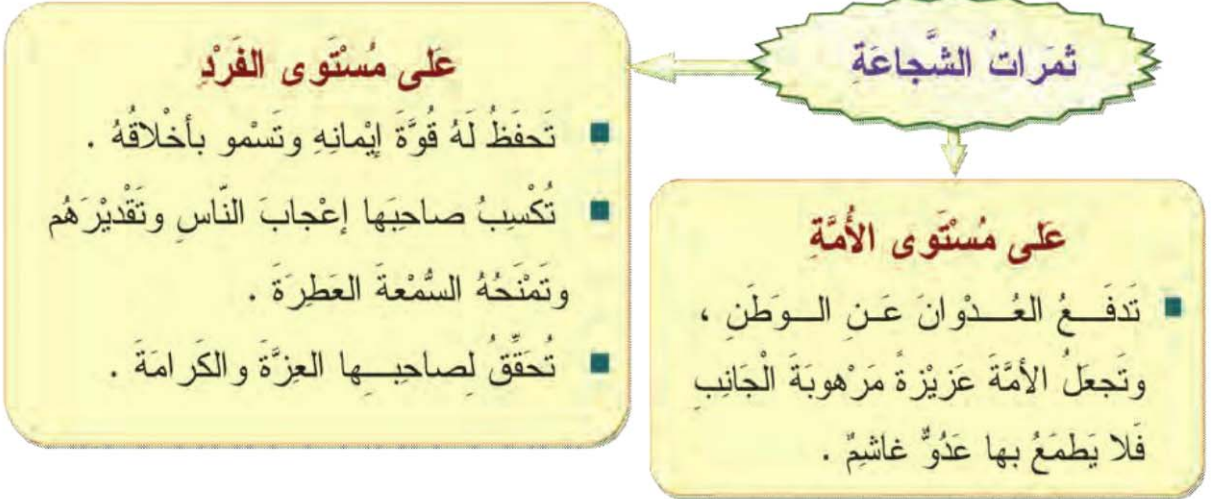 ثَمَرَاتُ الشَّجاعَةِ
عَلى مُسْتَوى الفَرْدِ
▪ تَحفَظُ لَهُ قُوَّةَ إِيْمانِهِ وتَسْمو بأخْلاقُهُ .
▪ تُكْسِبُ صاحِبَها إعْجابَ النّاسِ وتَقْديْرَهُم
وتَمْنَحُهُ السُّمْعةَ العَطِرَةَ .
▪ تُحَقِّقُ لِصاحِبِــها العِزَّةَ والكَرامَةَ .
عَلى مُسْتَوى الأُمَّةِ
▪ تَدفَــعُ العُــدْوانَ عَـنِ الــوَطَنِ ،
وتَجعَلُ الأمَّةَ عَزيْزةً مَرْهوبَةَ الْجَانِبِ
فَلا يَطمَعُ بها عَدُوٌّ غاشِمٌ .